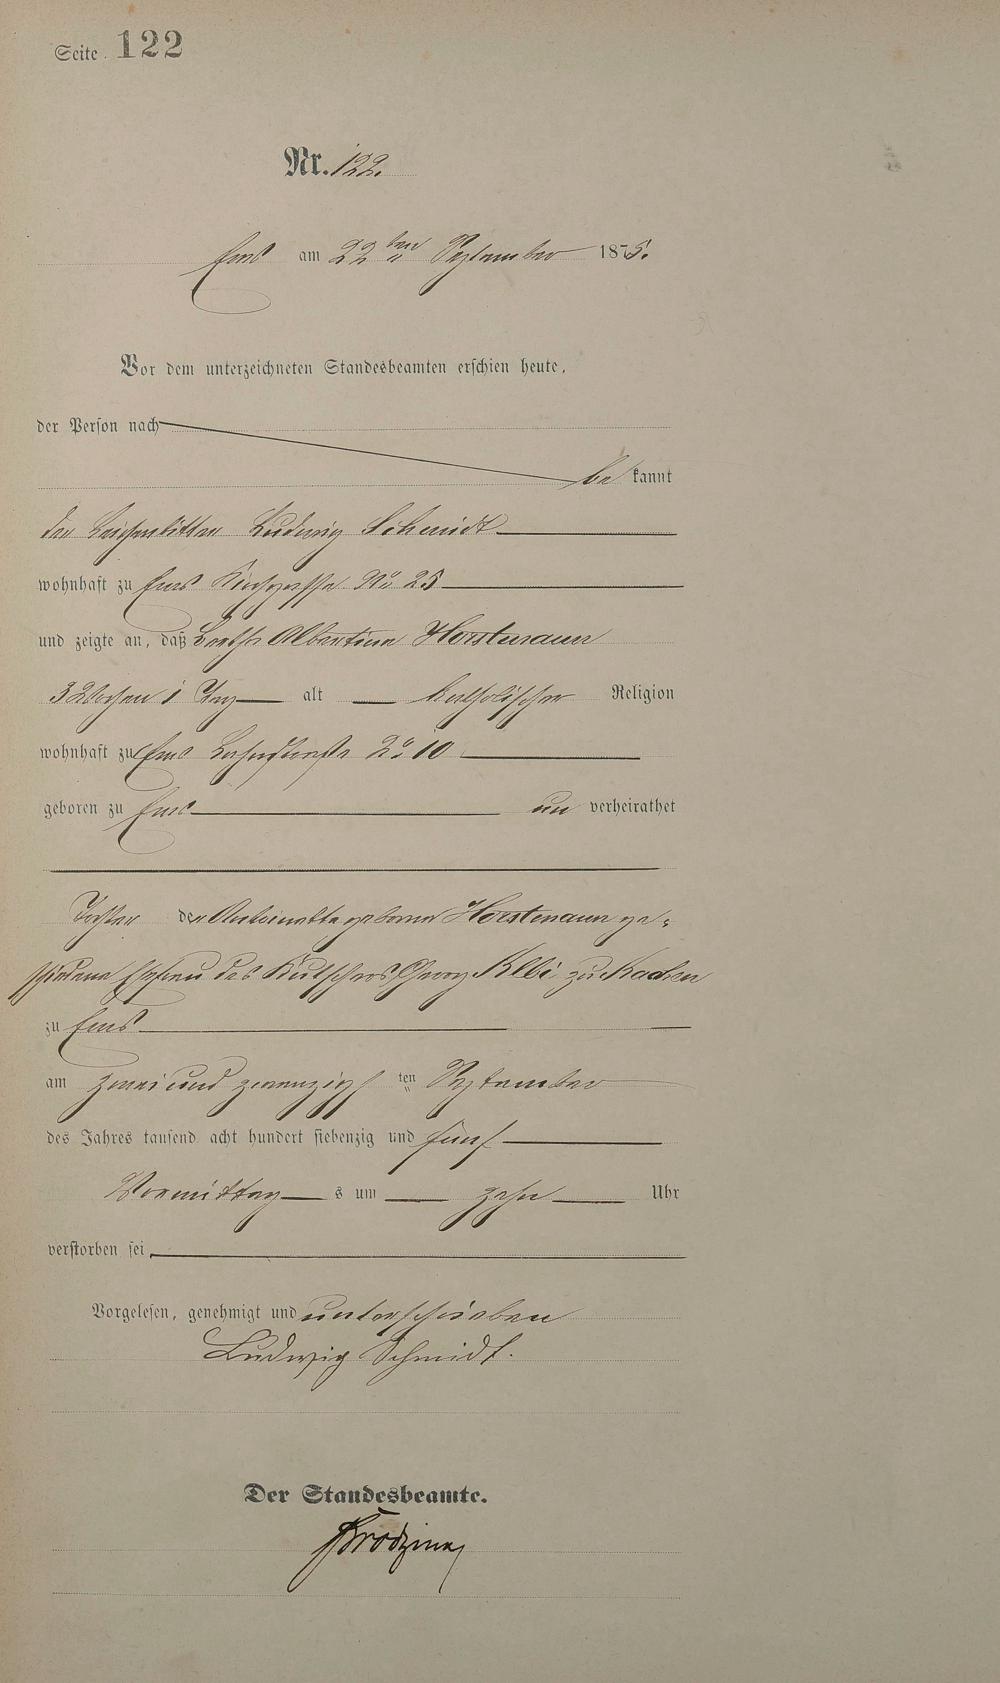 Seite. 122
Nr. 122.
Ems am 22 ten September 1875.
Vor dem unterzeichneten Standesbeamten erschien heute,
der Person nach
be kannt
der Leichenbitter Ludwig Schmidt
wohnhaft zu Ems Kirchgasse No 25
und zeigte an, daß Bertha Albertina Horstmann
3 Wochen 1 Tag alt katholischer Religion
wohnhaft zu Ems Lahnstraße No 10
geboren zu Ems un verheirathet
Tochter der Antoinetta geborne Horstmann ge-
schiedene Ehefrau des Kutschers Georg zu
zu Ems
am zwei und zwanzigs ten September
des Jahres tausend acht hundert siebenzig und fünf
Vormittag s um zehn Uhr
verstorben sei
Vorgelesen, genehmigt und unterschrieben
Ludwig Schmidt.
Der Standesbeamte.